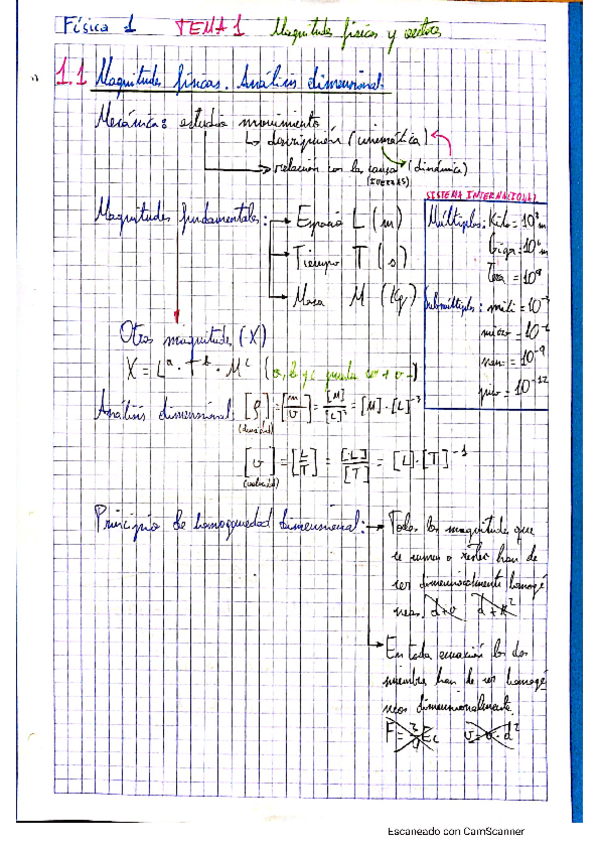 Física 1 TEMA 1 Magnitudes físicas y vectores
1.1 Magnitudes físicas. Análisis dimensional.
Mecánica: estudia movimiento
↳ descripción (cinemática)
→ relación con las causas (dinámica)
(FUERZAS)
SISTEMA INTERNACIONAL
Magnitudes fundamentales: → Espacio L (m)
→ Tiempo T (s)
→ Masa M (Kg)
Múltiplos: Kilo = 10³ m
Giga = 10⁶ m
Tera = 10⁹
Submúltiplos: mili = 10⁻³
micro = 10⁻⁶
nano = 10⁻⁹
pico = 10⁻¹²
Otras magnitudes (X)
X = Lᵃ · Tᵇ · Mᶜ (a, b y c pueden ser + o -)
Análisis dimensional: [ρ] = [m/V] = [M]/[L]³ = [M]·[L]⁻³
(densidad)
[v] = [L/T] = [L]/[T] = [L]·[T]⁻¹
(velocidad)
Principio de homogeneidad dimensional: → Todas las magnitudes que
se sumen o resten han de
ser dimensionalmente homogé
neas. d+v d+x²
→ En toda ecuación los dos
miembros han de ser homogé
neos dimensionalmente.
Escaneado con CamScanner